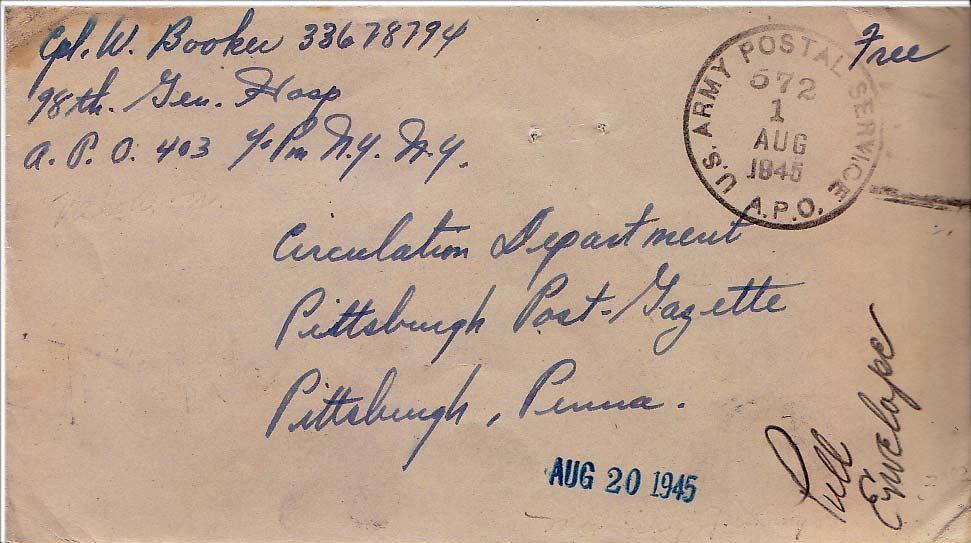 Cpl. W. Booker 33678794
98th. Gen. Hosp
A. P. O. 403 % Pm N.Y. N.Y.
Free
U.S. ARMY POSTAL SERVICE
572
1
AUG
1945
A.P.O.
Circulation Department
Pittsburgh Post-Gazette
Pittsburgh, Penna.
AUG 20 1945
Pull
Envelope